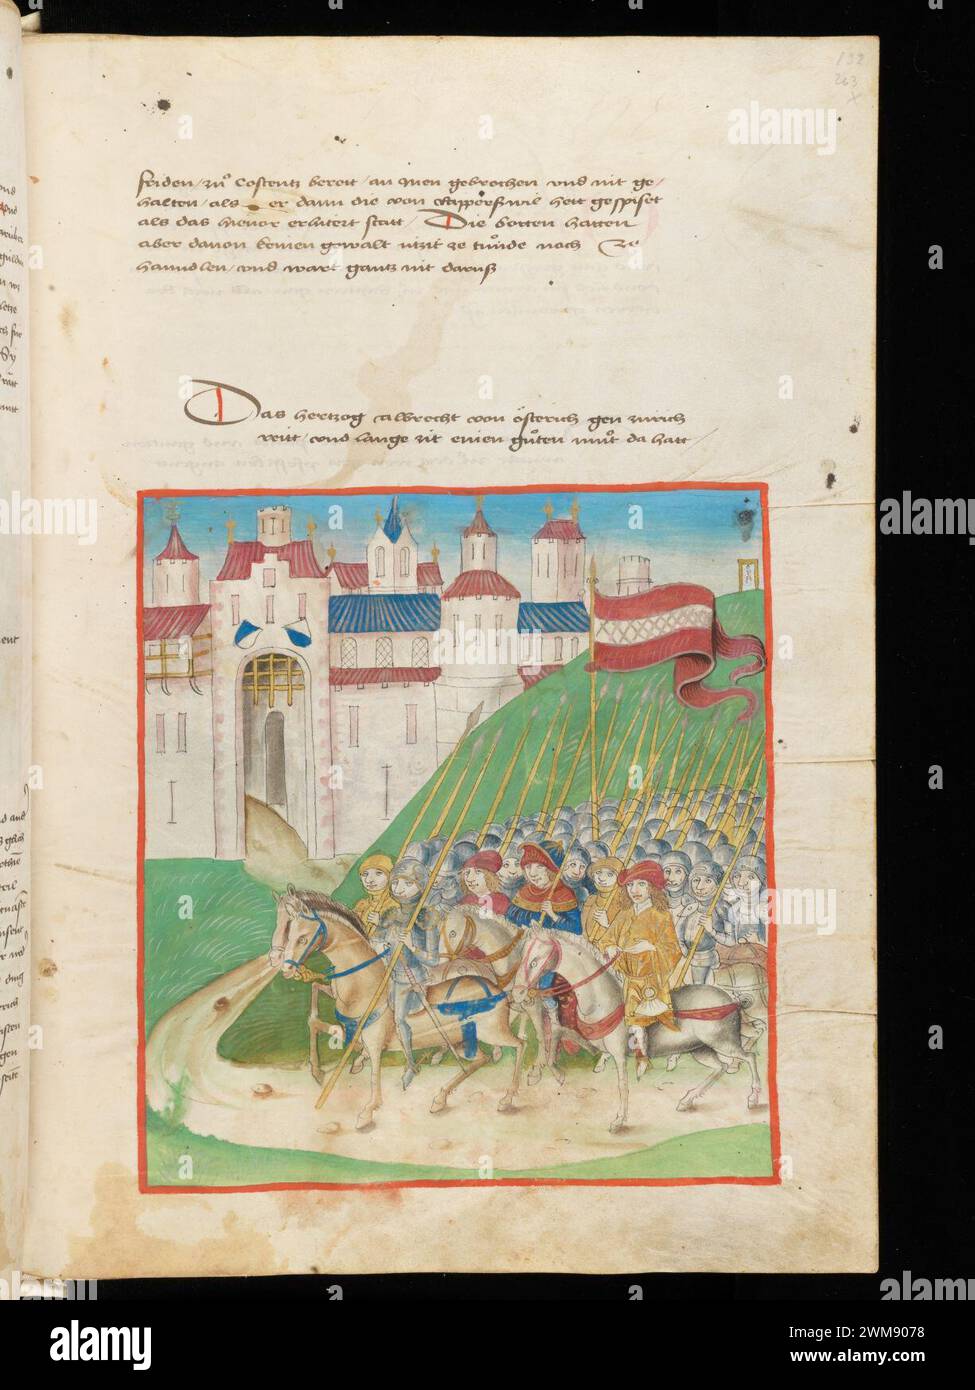 friden / zuͦ Costentz bereit / an Inen gebrochen vnd nit ge-
halten / als er dann die von Rapperßwil heit gespiset
als das hieuor erlütert statt / Die botten hatten
aber dauon keinen gewalt ützit ze tuͦnde noch ze
hanndlen / vnd wart gantz nit daruß
Das hertzog Albrecht von österich gen zürich
reitt / vnd lange zit einen guͦten muͦt da hatt /
132
263
alamy
alamy
Image ID: 2WM9078
www.alamy.com